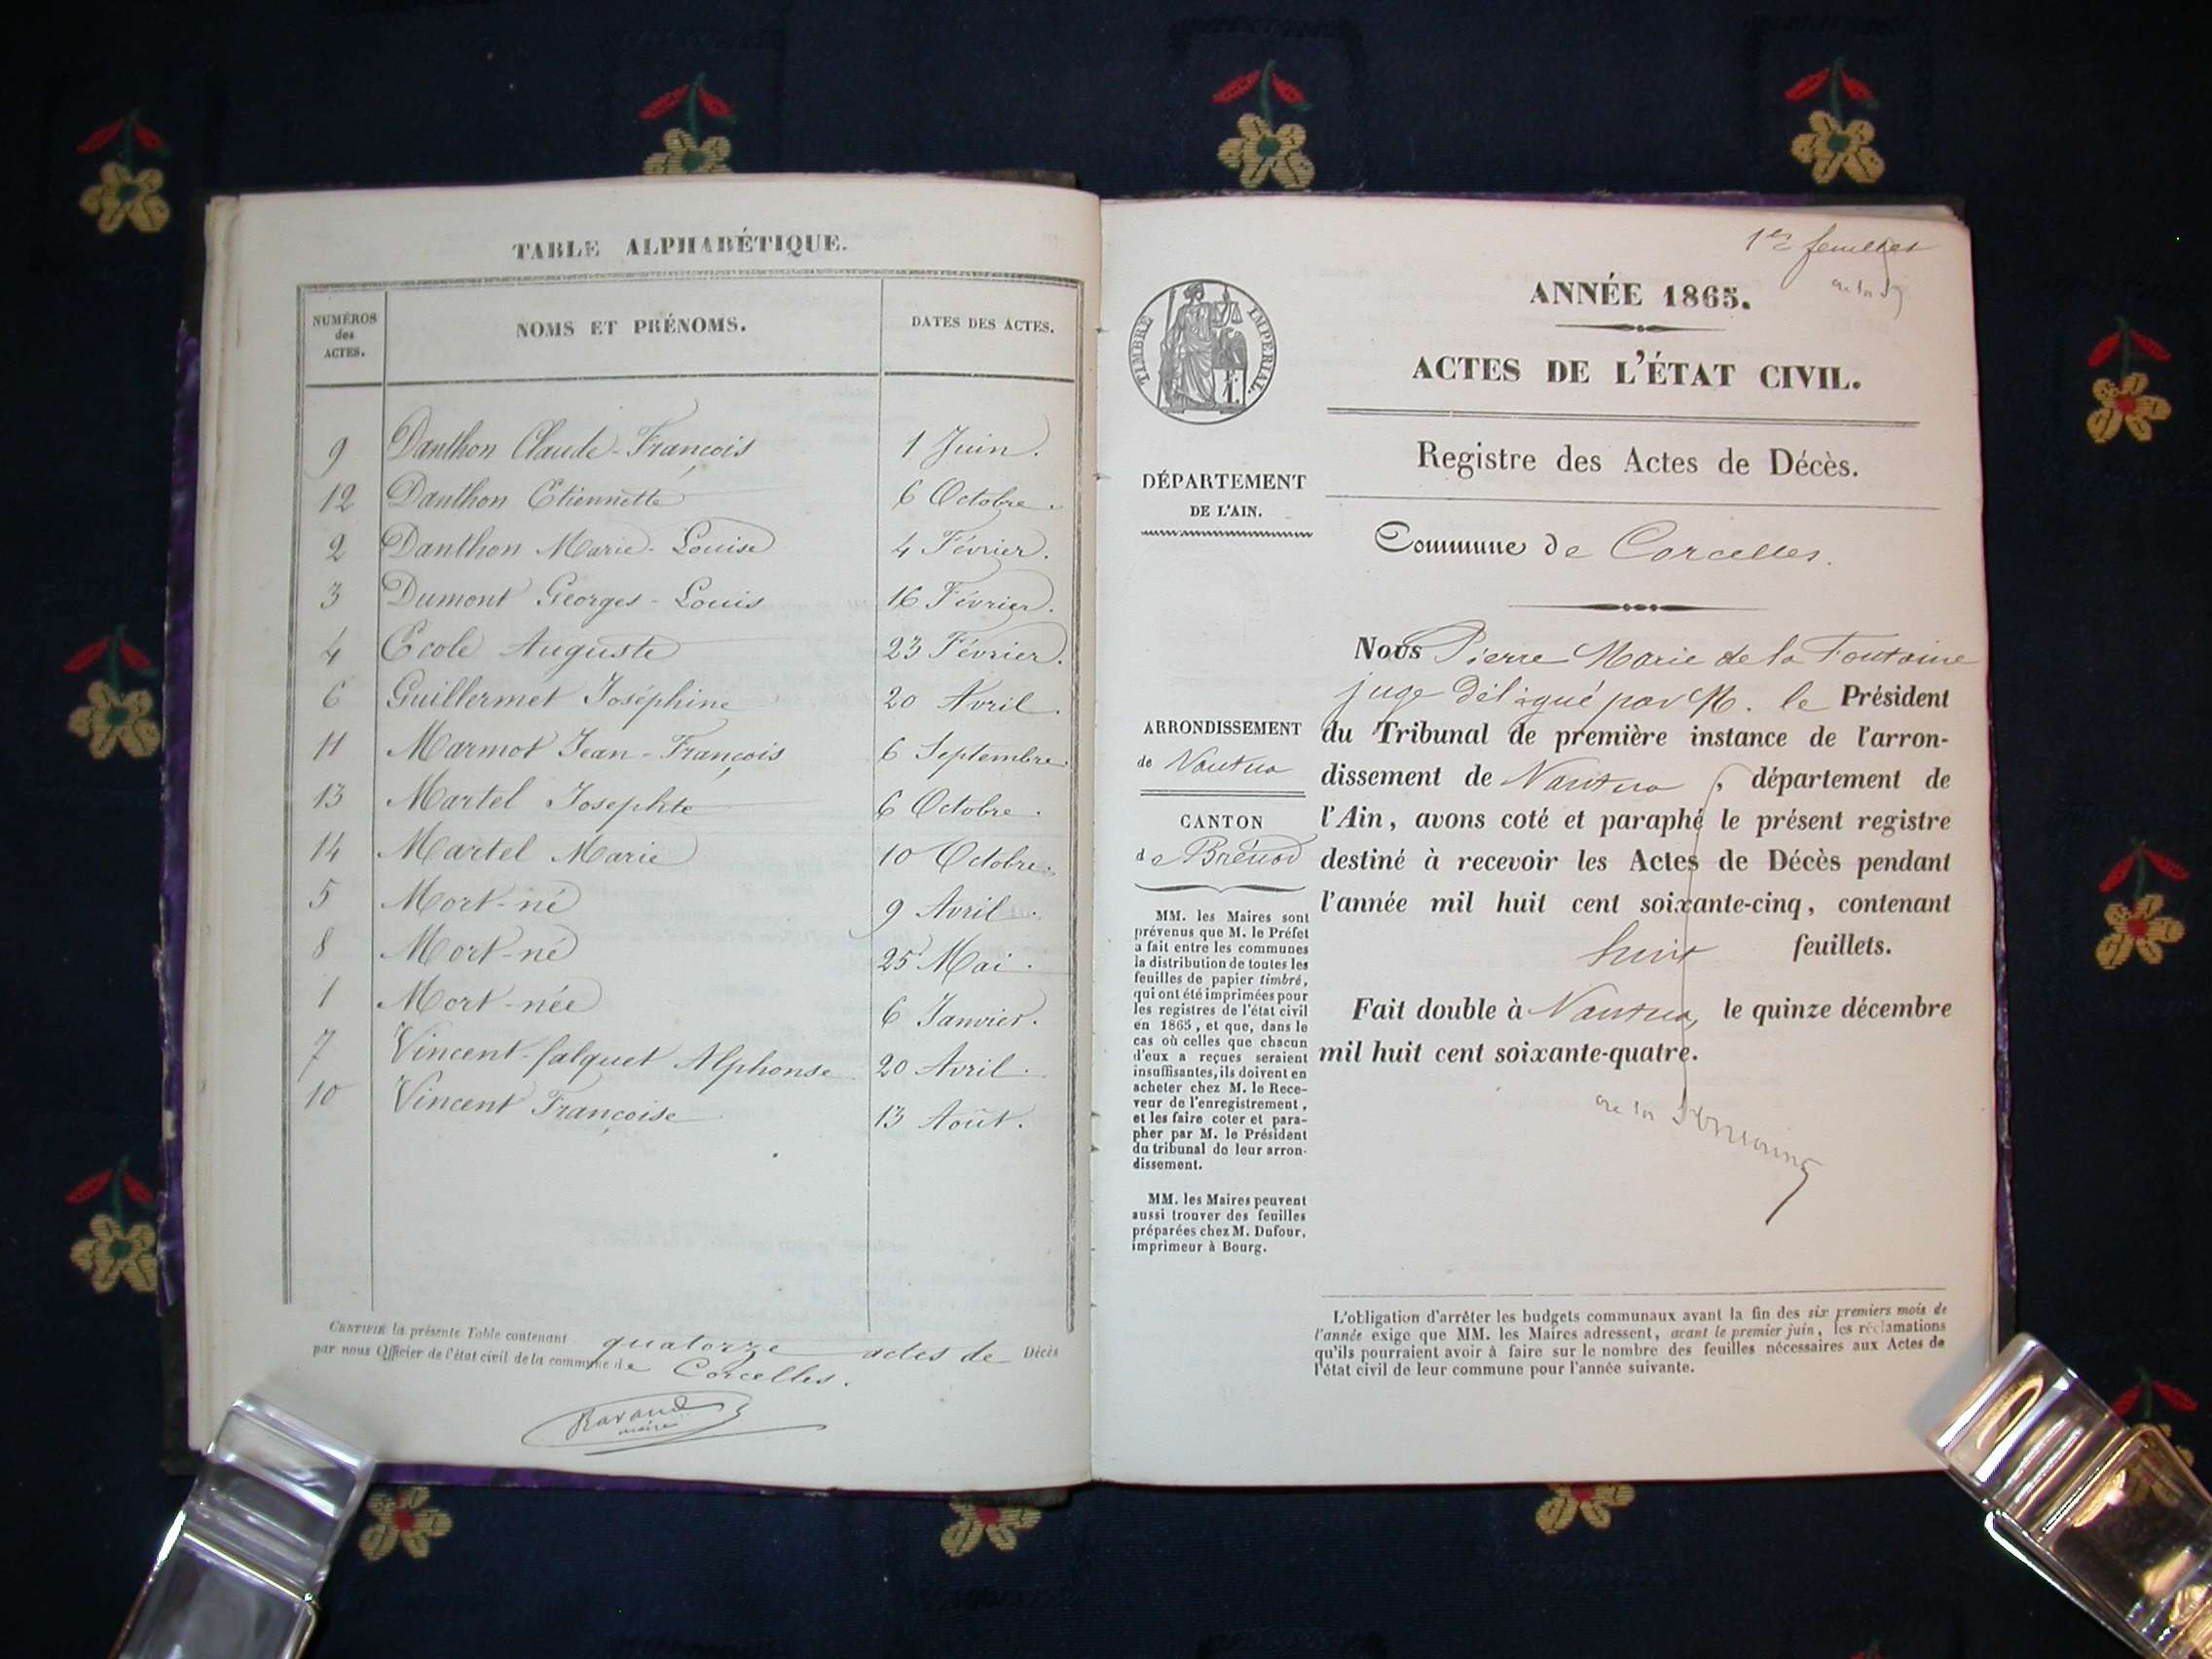 TABLE ALPHABÉTIQUE.
NUMÉROS des ACTES. NOMS ET PRÉNOMS. DATES DES ACTES.
9 Danthon Claude-François 1 Juin.
12 Danthon Etiennette 6 Octobre.
2 Danthon Marie-Louise 4 Février.
3 Dumont Georges-Louis 16 Février.
4 Ecole Auguste 23 Février.
6 Guillermet Joséphine 20 Avril.
11 Marmot Jean-François 6 Septembre.
13 Martel Josephte 6 Octobre.
14 Martel Marie 10 Octobre.
5 Mort-né 9 Avril.
8 Mort-né 25 Mai.
1 Mort-née 6 Janvier.
7 Vincent-falquet Alphonse 20 Avril.
10 Vincent Françoise 13 Août.
CERTIFIÉ la présente Table contenant quatorze actes de Décès
par nous Officier de l'état civil de la commune de Corcelles.
Ravaud
maire
1er feuillet
ANNÉE 1865.
ACTES DE L'ÉTAT CIVIL.
Registre des Actes de Décès.
Commune de Corcelles.
TIMBRE IMPERIAL.
DÉPARTEMENT
DE L'AIN.
ARRONDISSEMENT
de Nantua
CANTON
de Brénod
MM. les Maires sont
prévenus que M. le Préfet
a fait entre les communes
la distribution de toutes les
feuilles de papier timbré,
qui ont été imprimées pour
les registres de l'état civil
en 1865, et que, dans le
cas où celles que chacun
d'eux a reçues seraient
insuffisantes, ils doivent en
acheter chez M. le Rece-
veur de l'enregistrement,
et les faire coter et para-
pher par M. le Président
du tribunal de leur arron-
dissement.
MM. les Maires peuvent
aussi trouver des feuilles
préparées chez M. Dufour,
imprimeur à Bourg.
Nous Pierre Marie de la Fontaine
juge délégué par M. le Président
du Tribunal de première instance de l'arron-
dissement de Nantua, département de
l'Ain, avons coté et paraphé le présent registre
destiné à recevoir les Actes de Décès pendant
l'année mil huit cent soixante-cinq, contenant
huit feuillets.
Fait double à Nantua, le quinze décembre
mil huit cent soixante-quatre.
L'obligation d'arrêter les budgets communaux avant la fin des six premiers mois de
l'année exige que MM. les Maires adressent, avant le premier juin, les réclamations
qu'ils pourraient avoir à faire sur le nombre des feuilles nécessaires aux Actes de
l'état civil de leur commune pour l'année suivante.